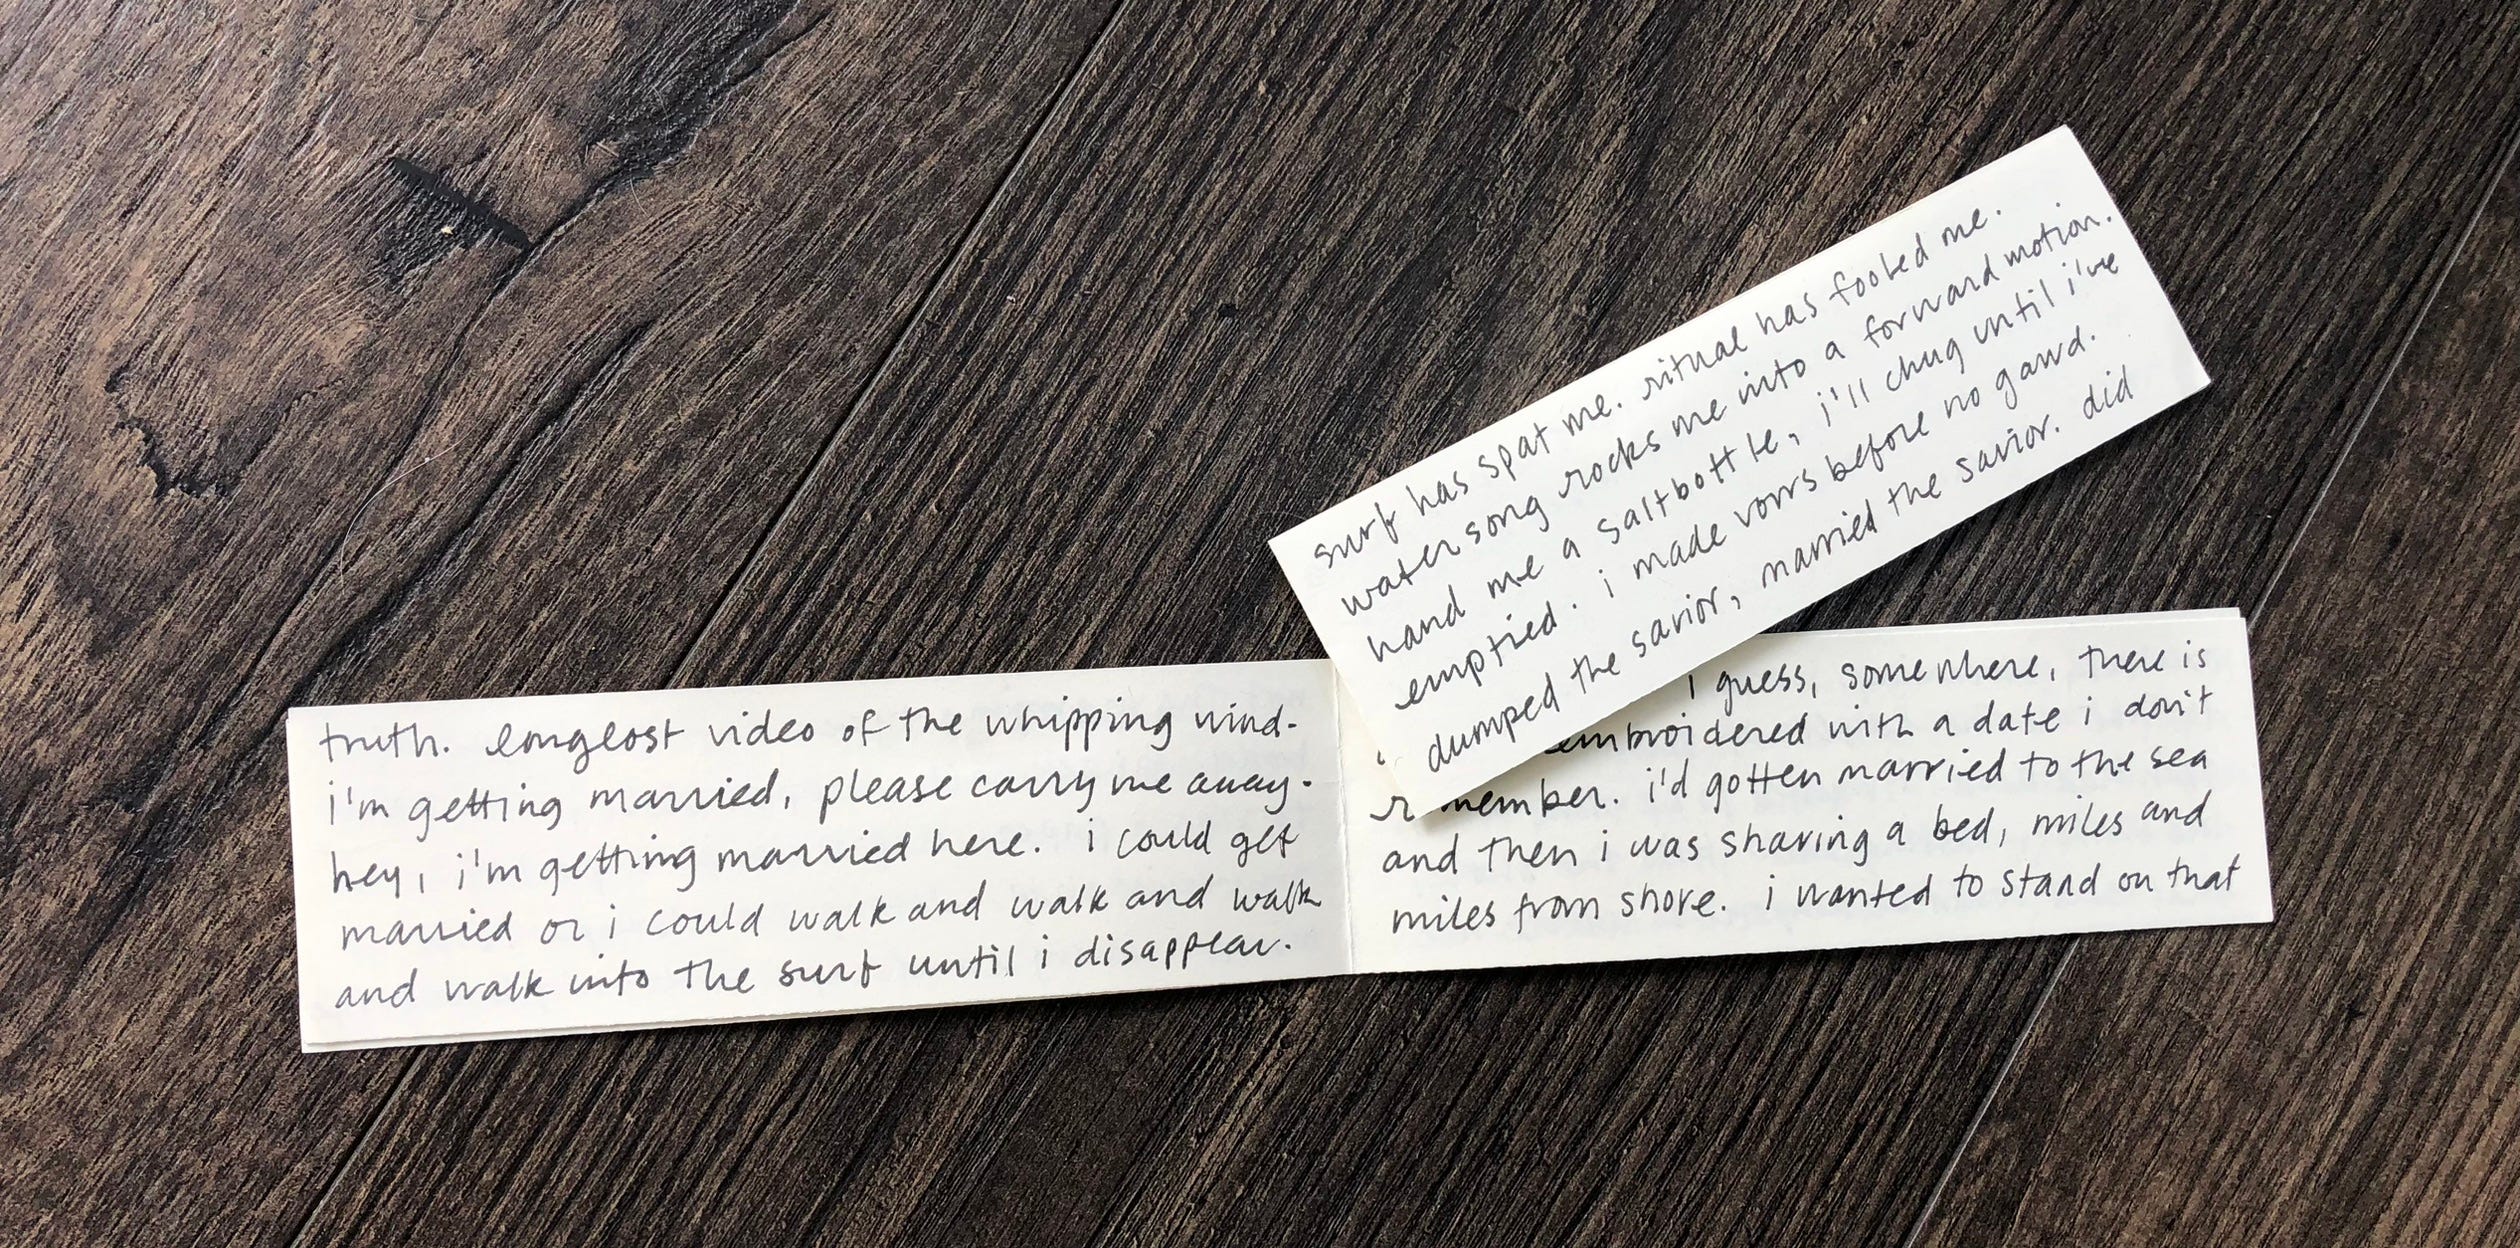 truth. longlost video of the whipping wind-
i'm getting married, please carry me away.
hey, i'm getting married here. i could get
married or i could walk and walk and walk
and walk into the surf until i disappear.
surf has spat me. ritual has fooled me.
watersong rocks me into a forward motion.
hand me a saltbottle, i'll chug until i've
emptied. i made vows before no gawd.
dumped the savior, married the savior. did
i guess, somewhere, there is
embroidered with a date i don't
remember. i'd gotten married to the sea
and then i was sharing a bed, miles and
miles from shore. i wanted to stand on that